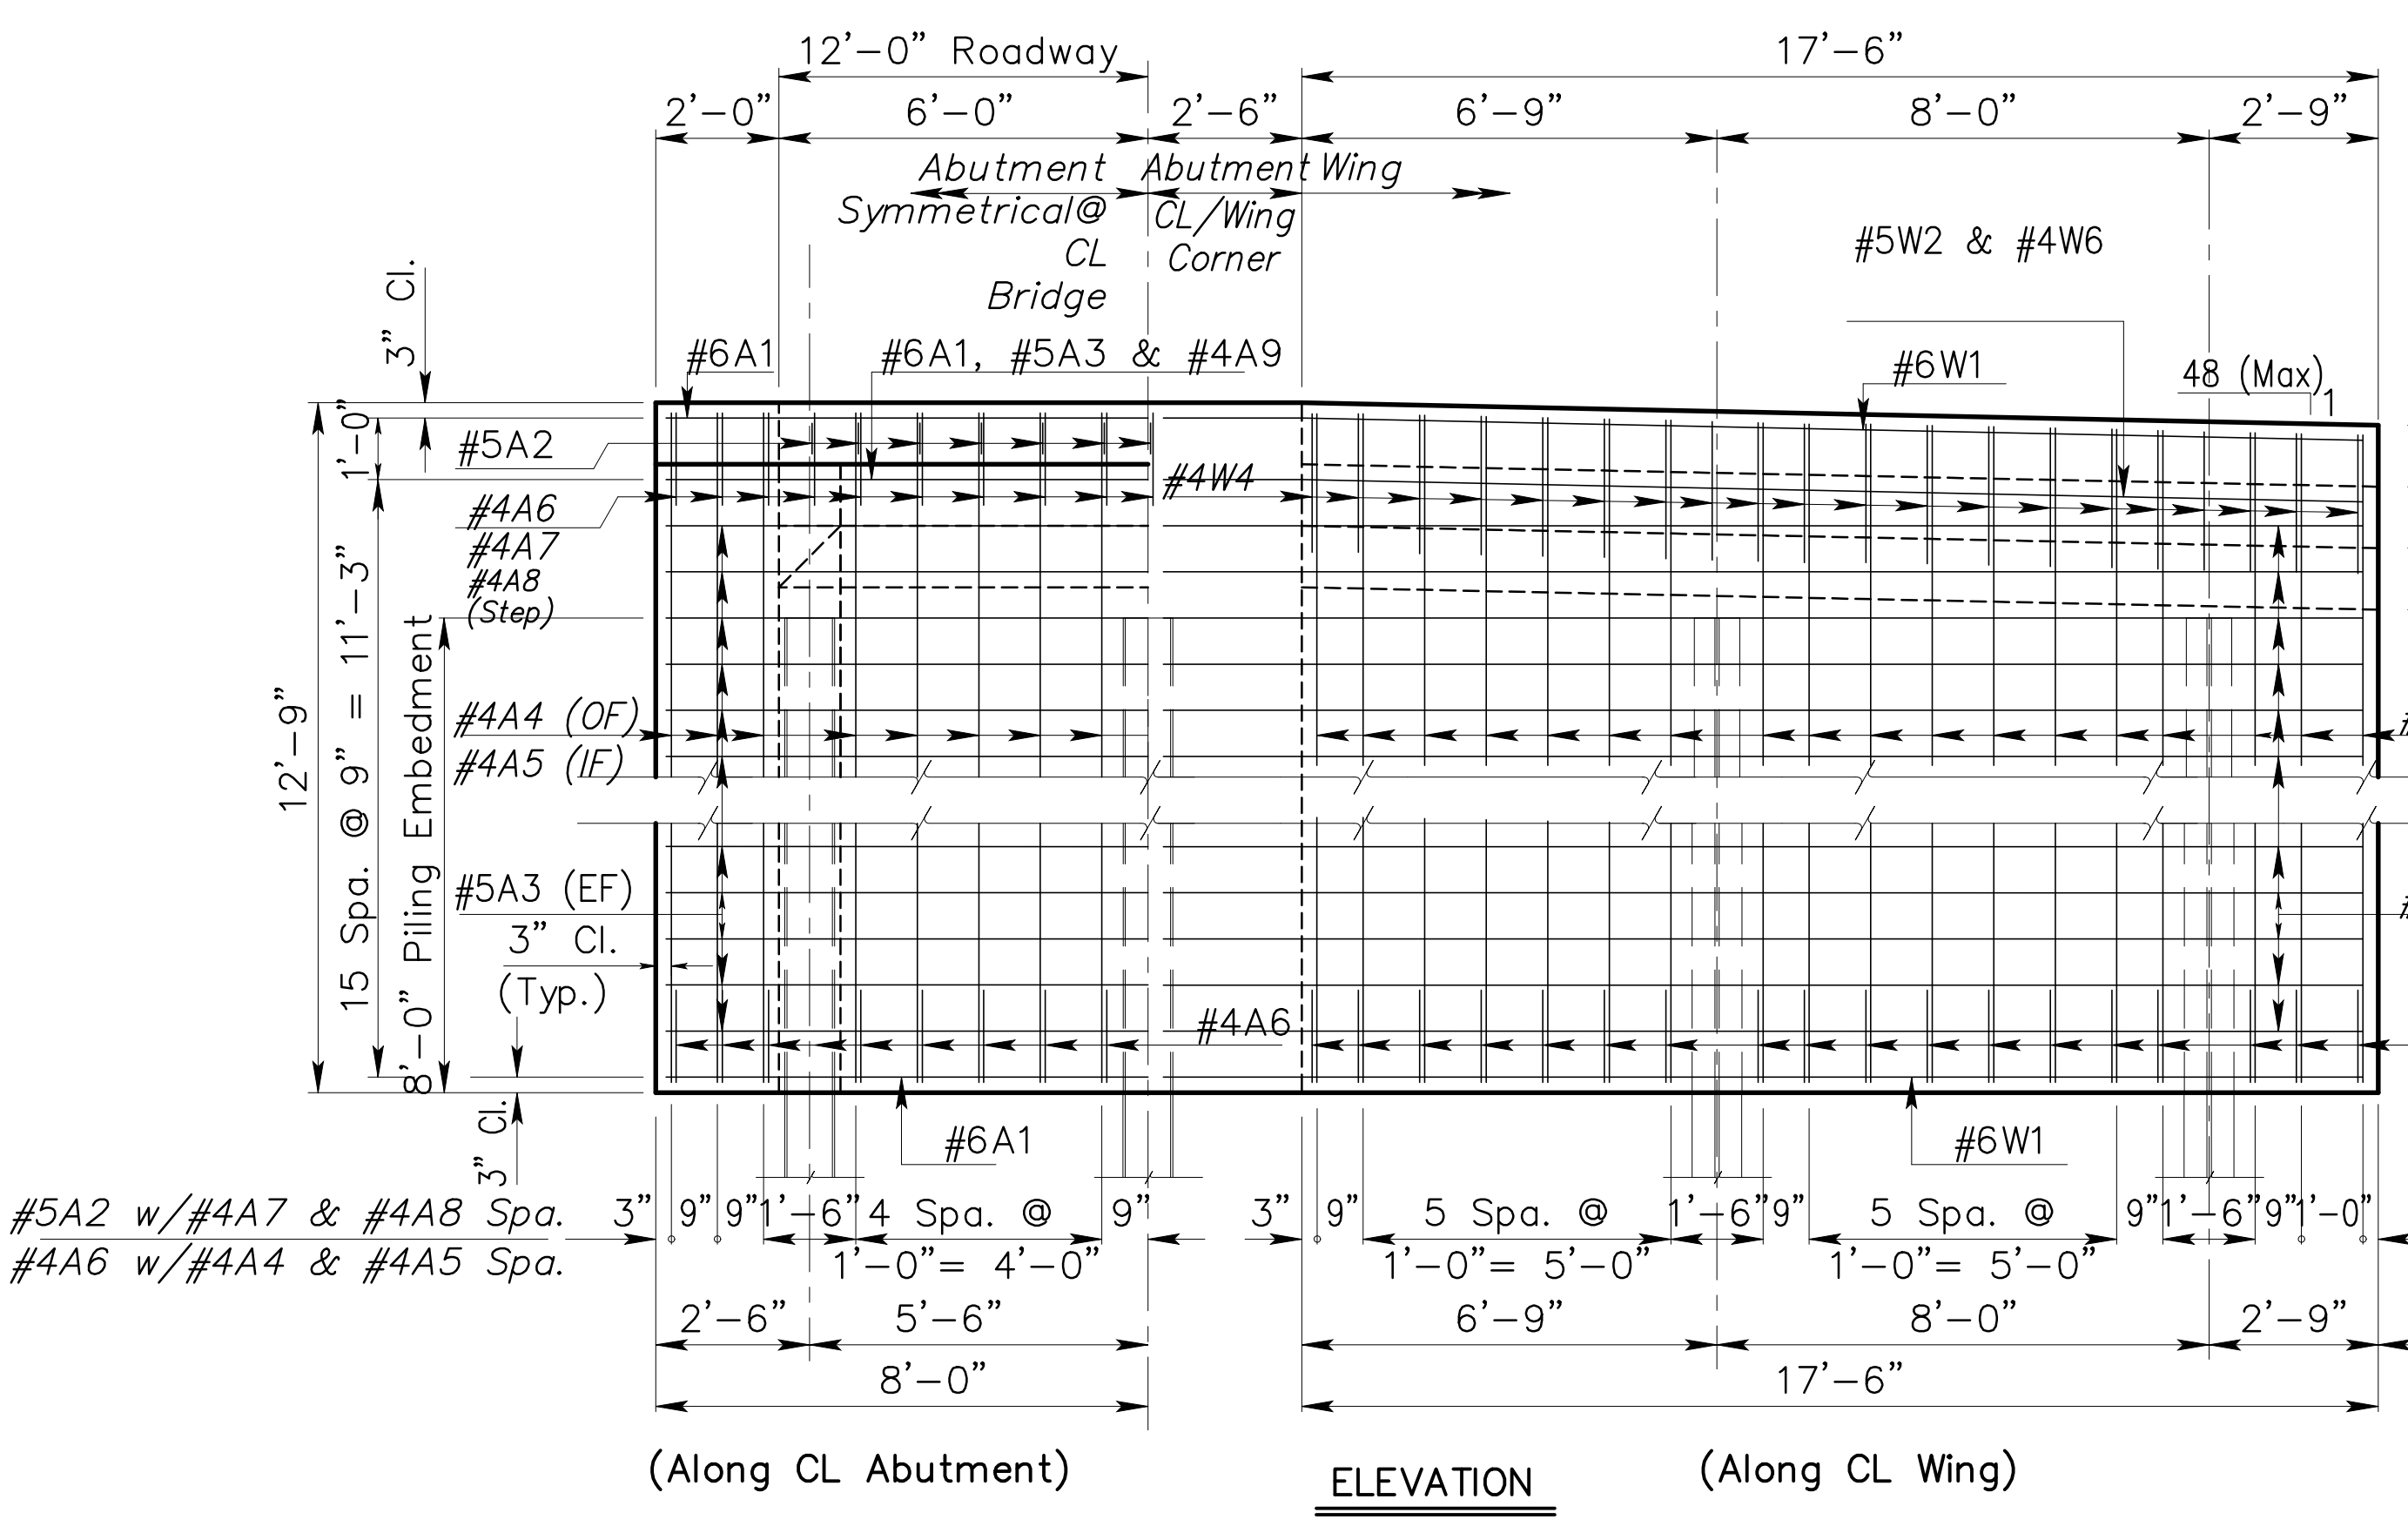 12'-0" Roadway
17'-6"
2'-0"
6'-0"
2'-6"
6'-9"
8'-0"
2'-9"
Abutment
Symmetrical@
CL
Bridge
Abutment
CL/Wing
Corner
Wing
#5W2 & #4W6
3" Cl.
#6A1
#6A1, #5A3 & #4A9
#6W1
48 (Max)
1
1'-0"
#5A2
#4A6
#4A7
#4A8
(Step)
#4W4
12'-9"
15 Spa. @ 9" = 11'-3"
8'-0" Piling Embedment
#4A4 (OF)
#4A5 (IF)
#5A3 (EF)
3" Cl.
(Typ.)
#4A6
3" Cl.
#6A1
#6W1
#5A2 w/#4A7 & #4A8 Spa.
#4A6 w/#4A4 & #4A5 Spa.
3"
9"
9"
1'-6"
4 Spa. @
1'-0"= 4'-0"
9"
3"
9"
5 Spa. @
1'-0"= 5'-0"
1'-6"
9"
5 Spa. @
1'-0"= 5'-0"
9"
1'-6"
9"
1'-0"
2'-6"
5'-6"
6'-9"
8'-0"
2'-9"
8'-0"
17'-6"
(Along CL Abutment)
ELEVATION
(Along CL Wing)